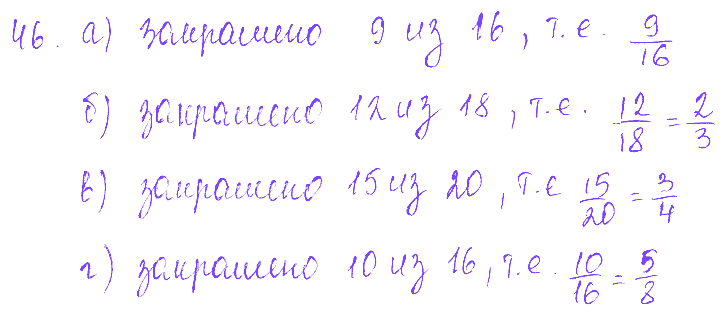 46. а) закрашено 9 из 16, т.е. 9/16
б) закрашено 12 из 18, т.е. 12/18 = 2/3
в) закрашено 15 из 20, т.е 15/20 = 3/4
г) закрашено 10 из 16, т.е. 10/16 = 5/8